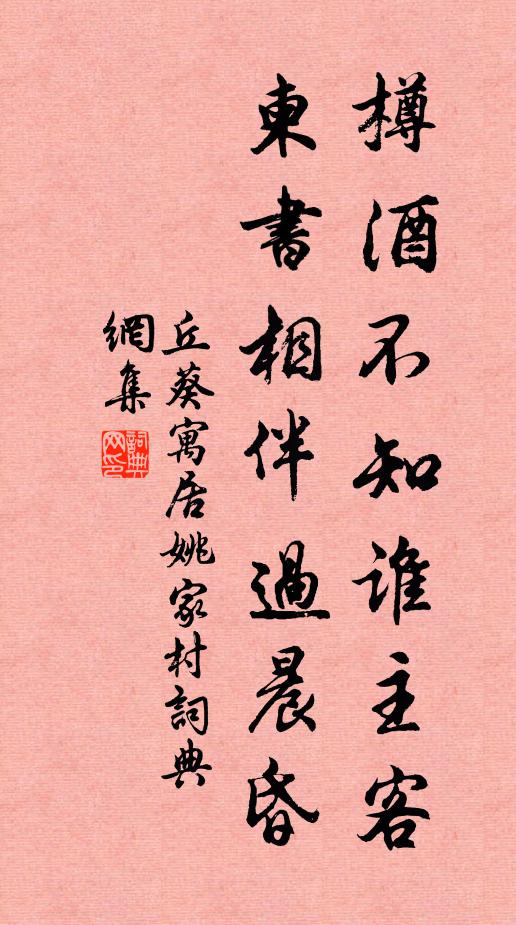 樽酒不知誰主客
東書相伴過晨昏
丘葵寓居姚家村詞典
網集
詞典網印